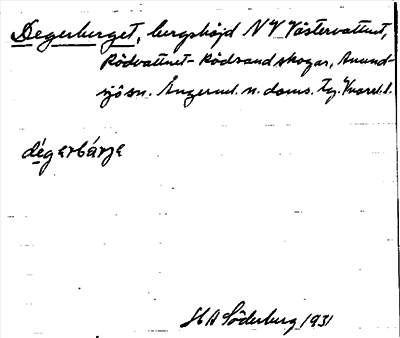 Degerberget, bergshöjd NV Västervattnet,
Rödvattnet-Rödsand skogar, Anund-
sjö sn. Ångerml. n. doms. Tg.
degerbärje
H A Söderberg 1931